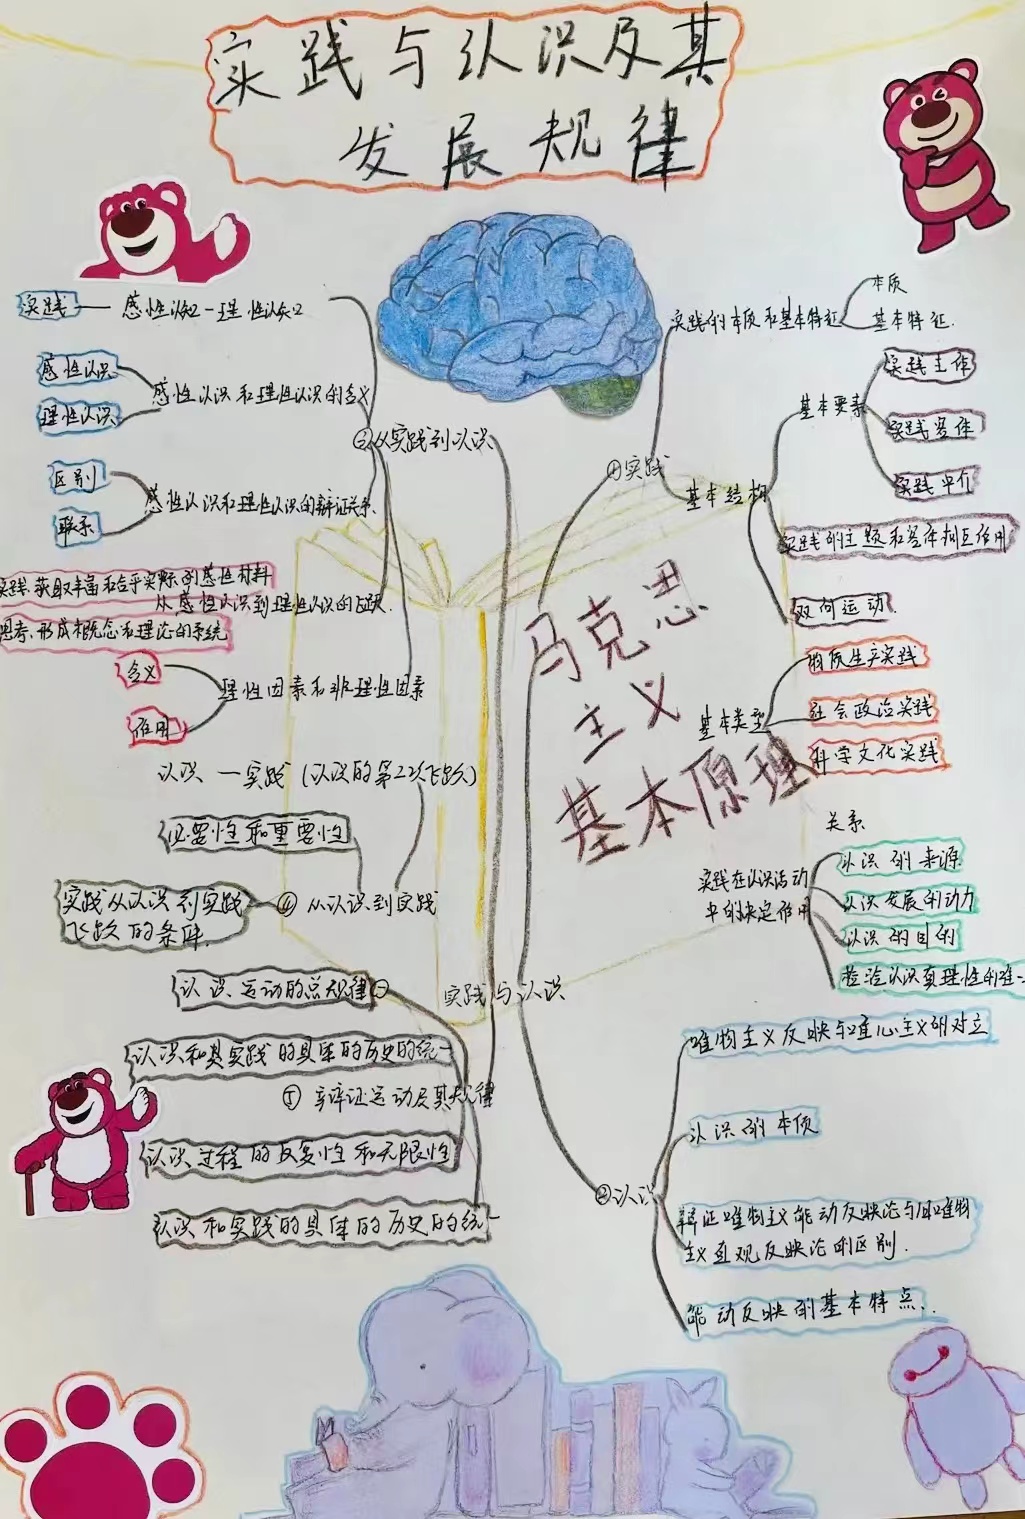 实践与认识及其
发展规律
实践
感性认知-理性认知
感性认识
理性认识
感性认识和理性认识的含义
③从实践到认识
区别
联系
感性认识和理性认识的辩证关系
实践、获取丰富和合乎实际的感性材料
从感性认识到理性认识的飞跃.
思考、形成概念和理论的系统
含义
作用
理性因素和非理性因素
认识—实践(认识的第2次飞跃)
必要性和重要性
实践从认识到实践
飞跃的条件.
④从认识到实践
认识运动的总规律
实践与认识
认识和其实践的具体的历史的统一
⑤辩证运动及其规律
认识过程的反复性和无限性
认识和实践的具体的历史的统一
①实践
实践的本质和基本特征
本质
基本特征.
基本结构
基本要素
实践主体
实践客体
实践中介
实践的主题和客体相互作用
双向运动
马克思
主义
基本原理
基本类型
物质生产实践
社会政治实践
科学文化实践
实践在认识活动
中的决定作用
关系
认识的来源
认识发展的动力
认识的目的
检验认识真理性的唯一
②认识
唯物主义反映与唯心主义的对立
认识的本质
辩证唯物主义能动反映论与旧唯物
主义直观反映论的区别.
能动反映的基本特点..